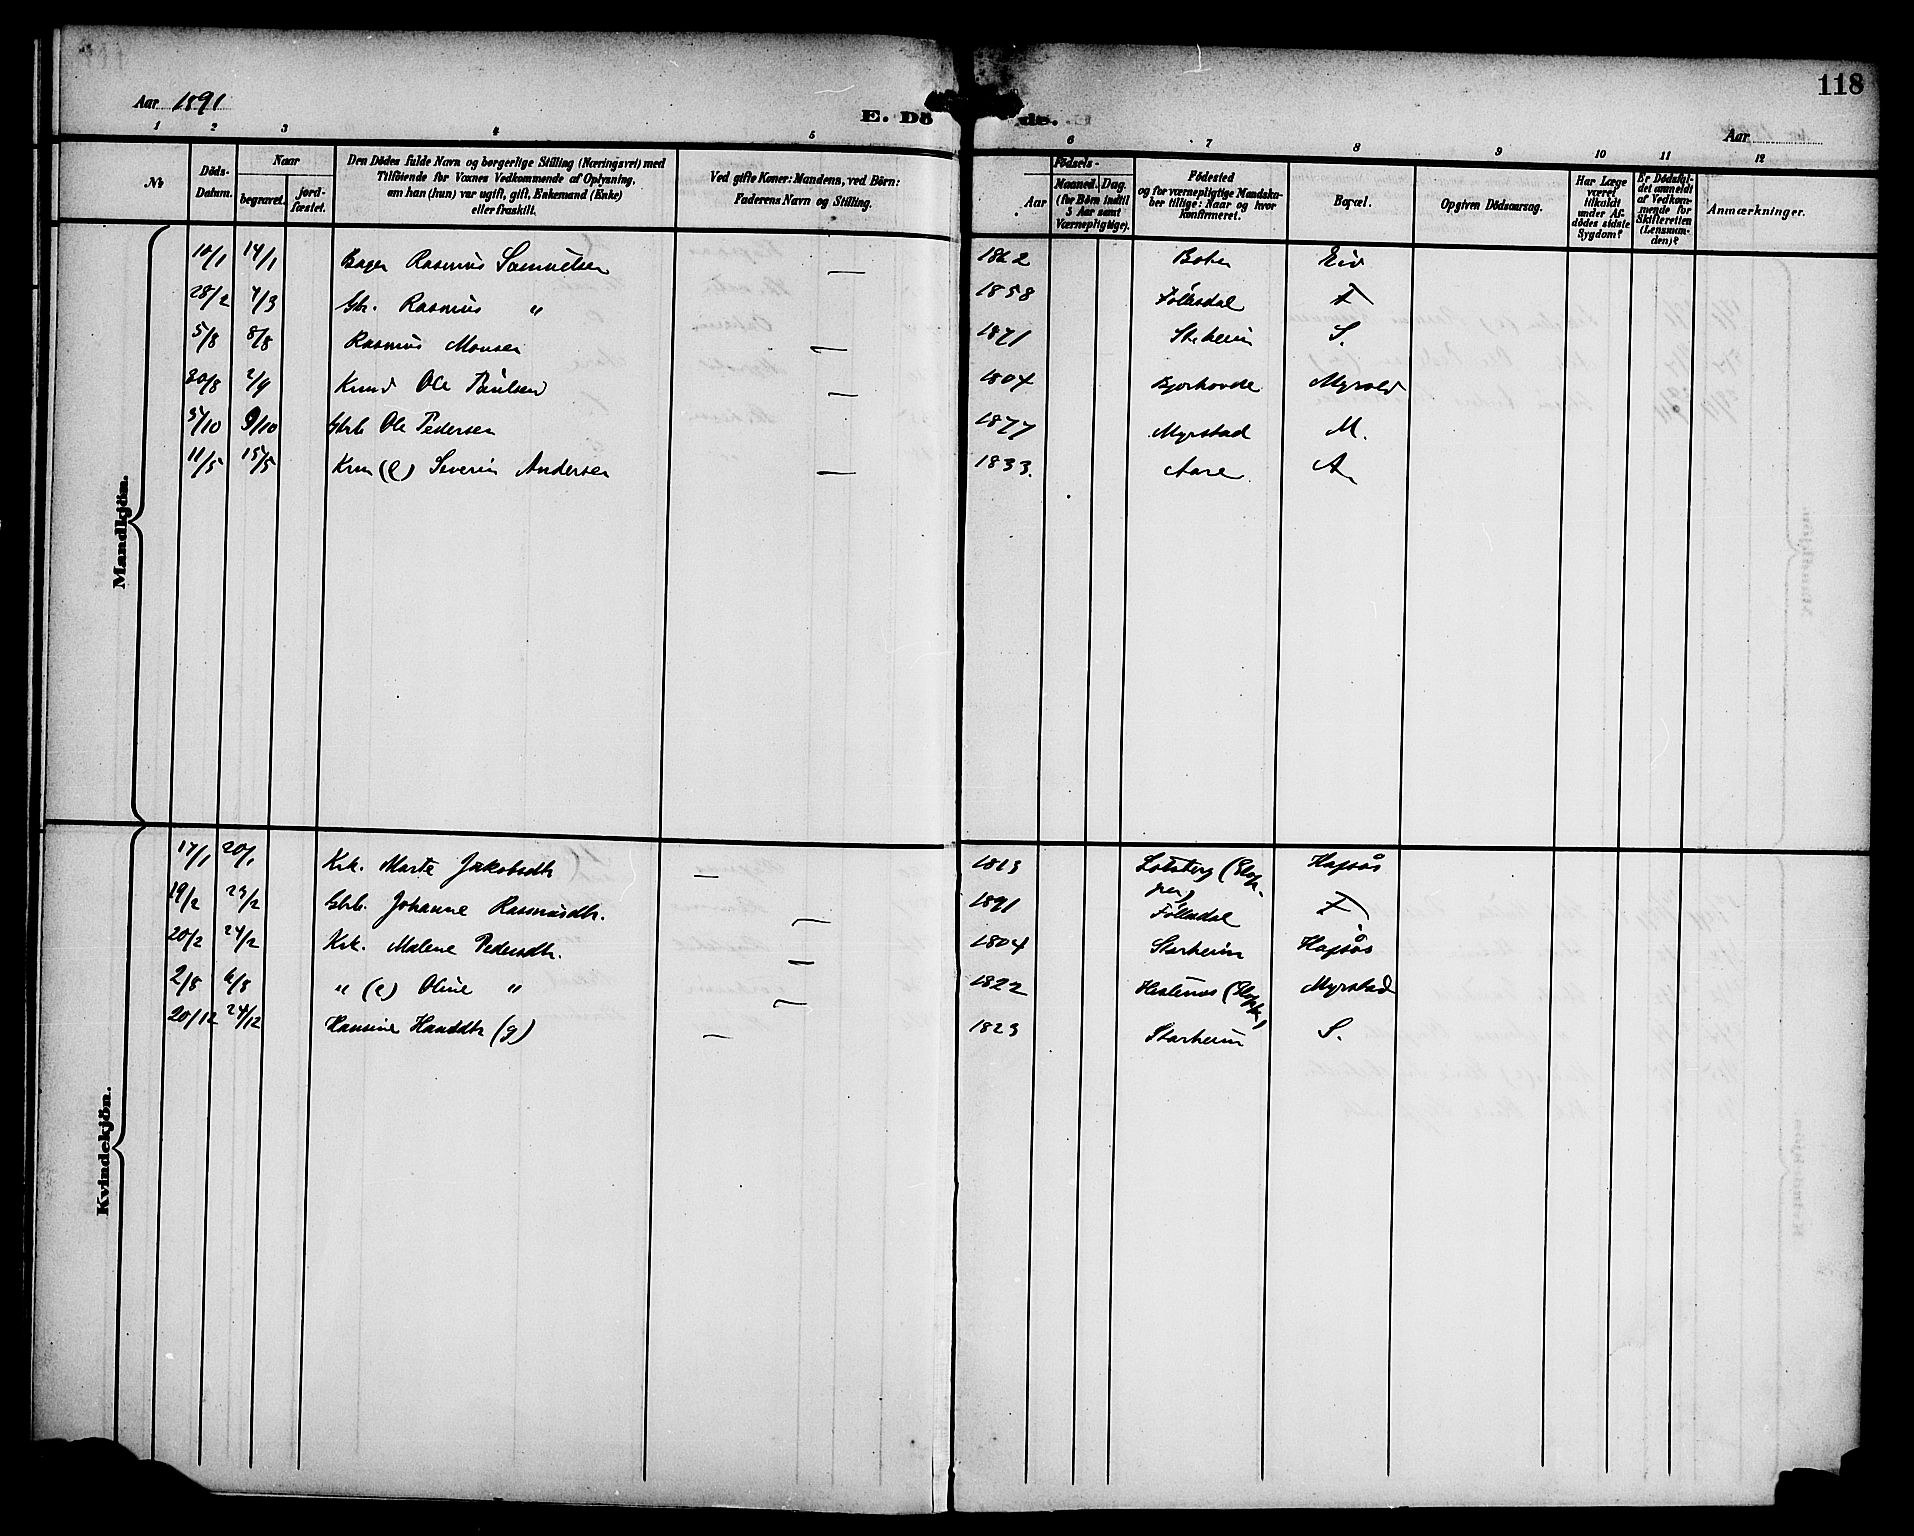 118
Aar 1891
E. Dö de.
Aar
1 2 3 4 5 6 7 8 9 10 11 12
No
Döds-Datum.
Naar
begravet.
jord-fæstet.
Den Dödes fulde Navn og borgerlige Stilling (Næringsvei) med
Tilföiende for Voxnes Vedkommende af Oplysning,
om han (hun) var ugift, gift, Enkemand (Enke)
eller fraskilt.
Ved gifte Koner: Mandens, ved Börn:
Faderens Navn og Stilling.
Födsels-
Aar
Maaned. Dag.
(for Börn indtil
5 Aar samt
Værnepligtige).
Födested
og for værnepligtige Mandska-
ber tillige: Naar og hvor
konfirmeret.
Bopæl.
Opgiven Dödsaarsag.
Har Læge
været
tilkaldt
under Af-
dödes sidste
Sygdom?
Er Dödsfal-
det anmeldt
af Vedkom-
mende for
Skifteretten
(Lensman-
den)?
Anmærkninger.
Mandkjön.
10/1 14/1 Rasmus Samuelsen — Eid
28/2 7/3 Gbr. Rasmus " 1858 Follesdal F
5/8 8/8 Rasmus Monsen — 1871 S.
30/8 2/9 Knud Ole Paulsen — 1804 Myrold
5/10 9/10 Gbrb Ole Pedersen 1877 Myrstad M.
11/5 15/5 Krm (e) Severin Andersen — 1833. Aare A.
Kvindekjön.
17/1 20/1 Krk. Marte Jakobsdtr — 1813 Hapsös
19/2 23/2 Gbrb. Johanne Rasmusdtr. — 1891 Föllesdal F
20/2 24/2 Krk. Malene Pedersdtr. — 1804 Starheim Hapsös
2/8 6/8 " (e) Oline " — 1822 Myrstad
20/12 24/12 Hansine Hansdtr (g) — 1823 Starheim S.